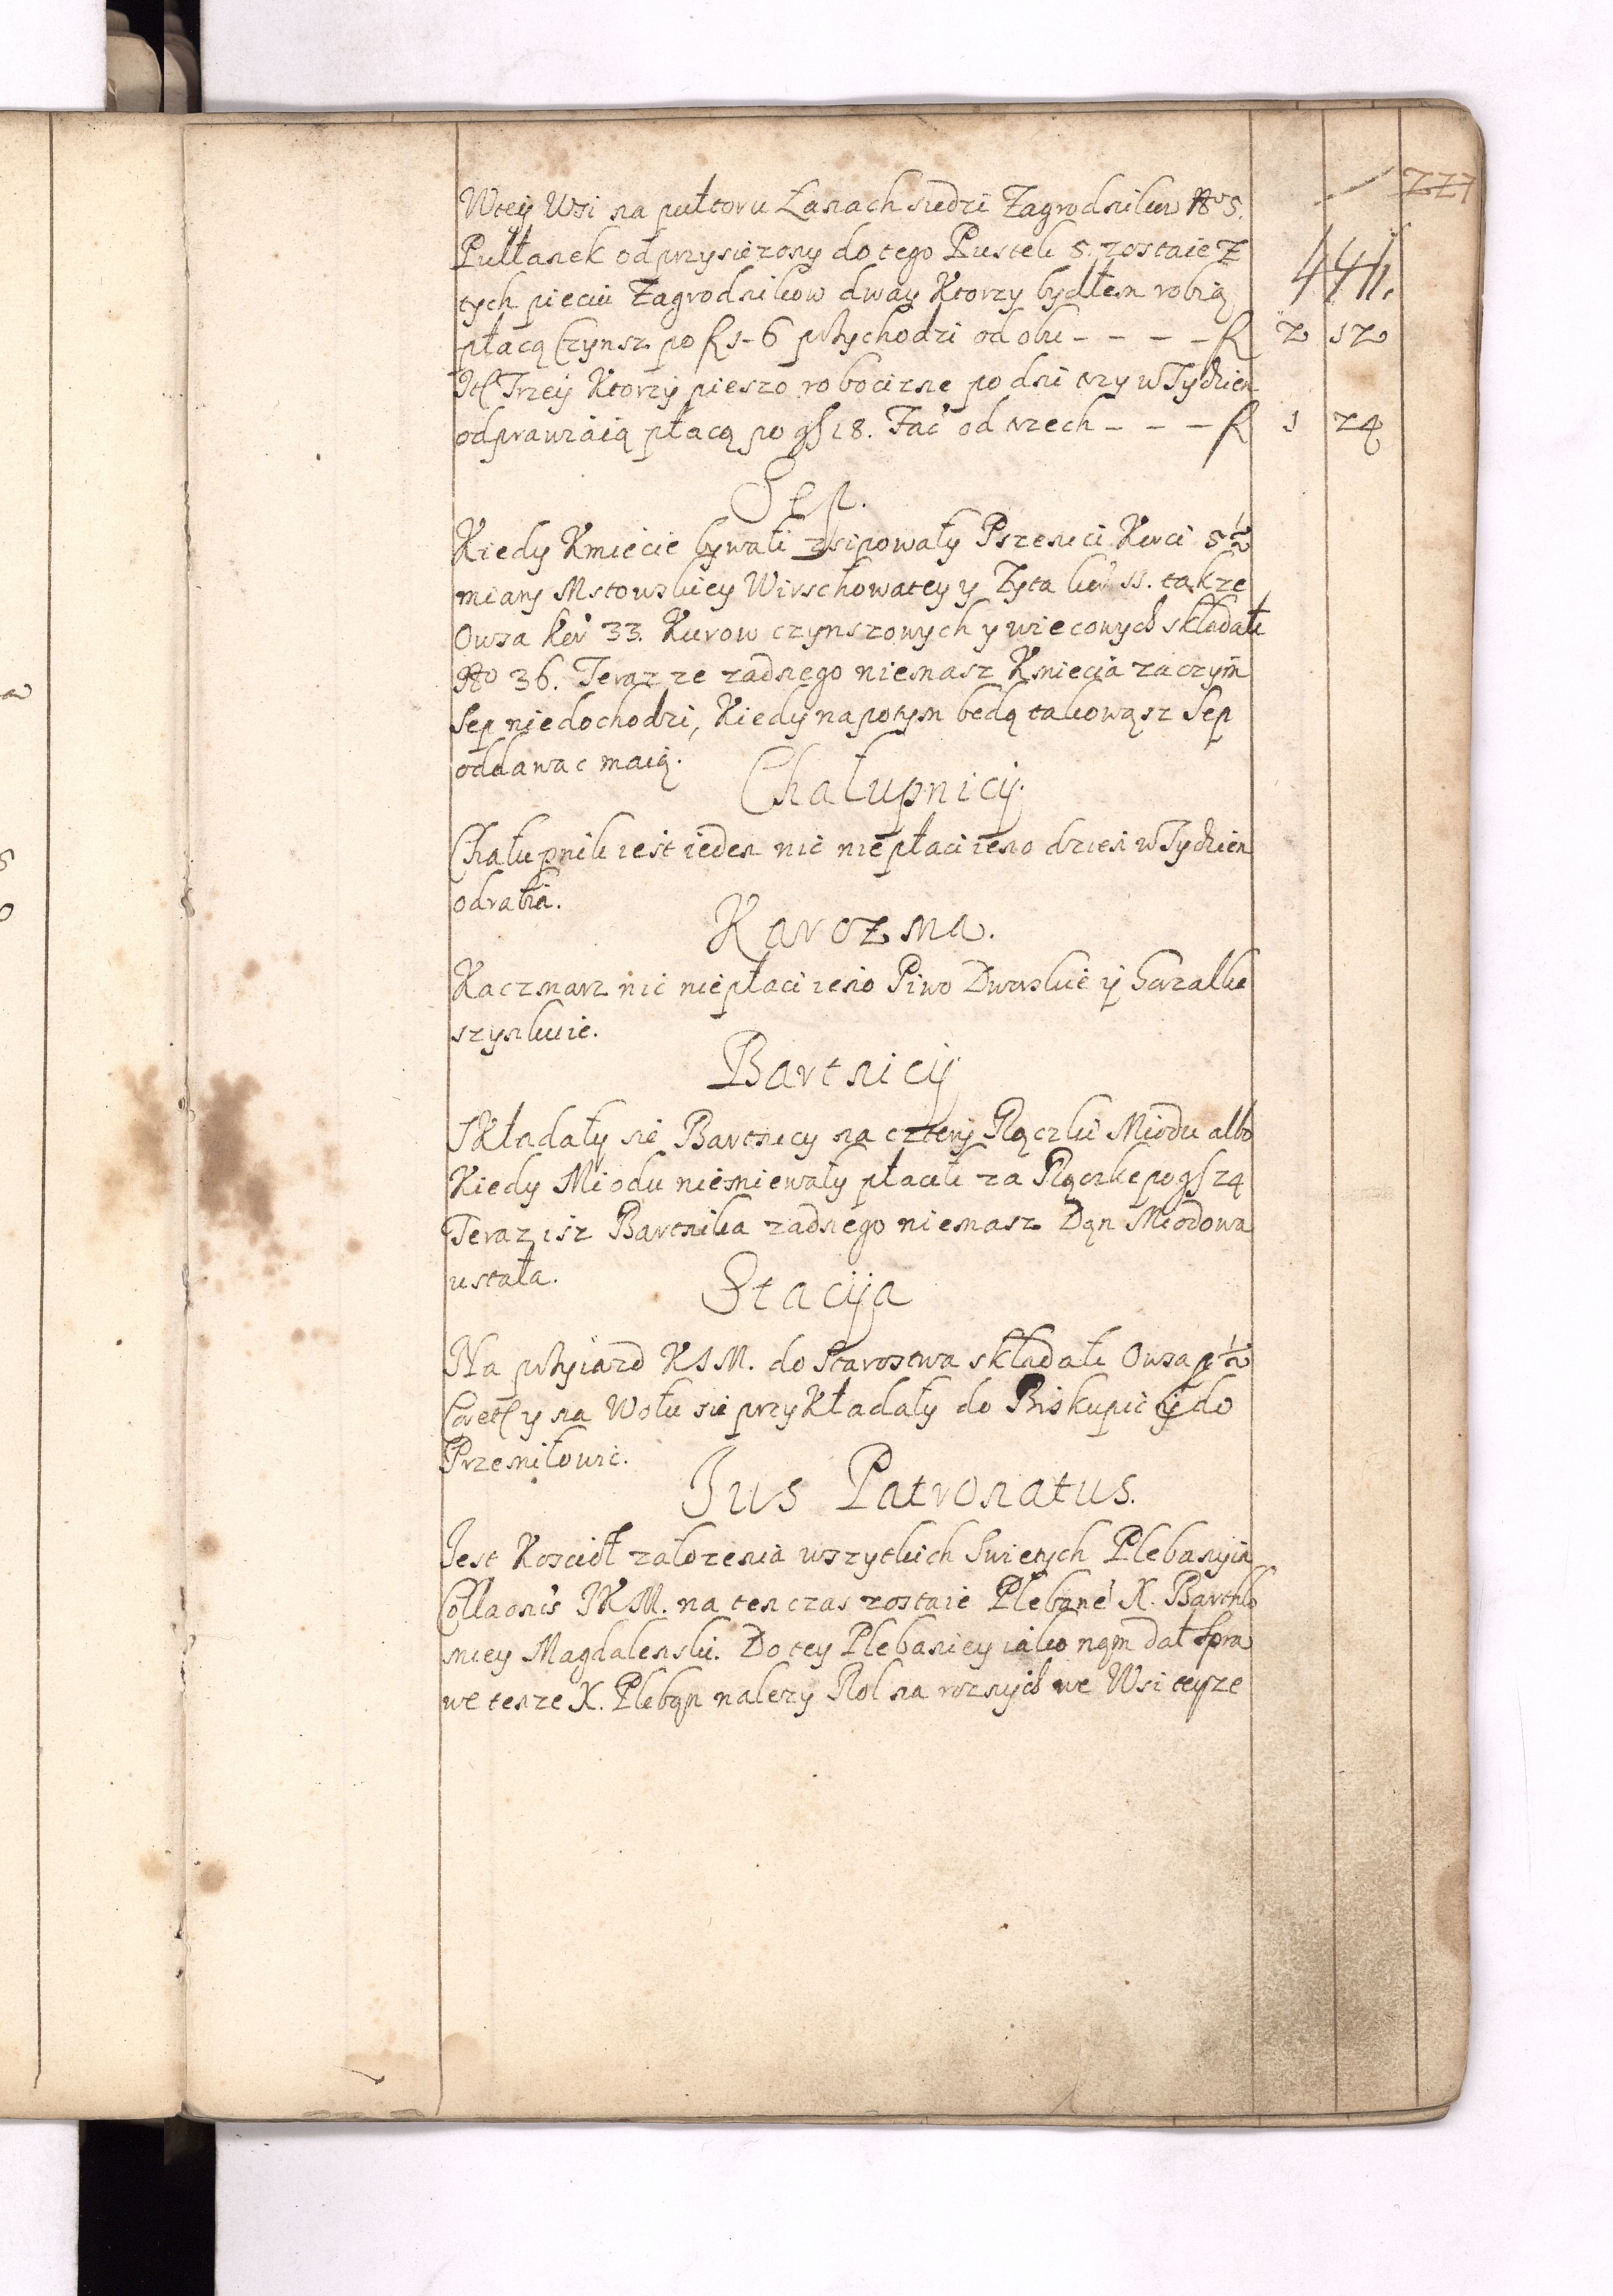 227
Wtey Wsi na pułtoru Łanach siedzi Zagrodnikow No 5.
441.
Pułłanek odprzysiezony do tego Pustek 5. zostaie z
tych pieciu Zagrodnikow dway Ktorzy bydłem robią
płacą Czynsz po f 1-6 przychodzi od obu - - - - f 2 12
Itt Trzey Ktorzy pieszo robocizne po dni trzy w Tydzien
odprawiaią płacą po gſ 18. Fac od trzech - - - f 1 24
Sep.
Kiedy Kmiecie bywali zsipowały Pszenici Korci 5 1/2
miary Mstowskiey Wirschowatey y Zyta kor 11. takze
Owsa kor 33. Kurow czynszowych y wiecowych składali
No 36. Teraz ze zadnego niemasz Kmiecia zaczym
Sep niedochodzi, Kiedy napotym będą takowąsz Sep
oddawac maią.
Chałupnicy.
Chałupnik iest ieden nic niepłaci ieno dzien w Tydzien
odrabia.
Karczma.
Kaczmarz nic niepłaci ieno Piwo Dworskie y Gorzalke
szynkuie.
Bartnicy
Składały sie Bartnicy na cztery Rączki Miodu albo
Kiedy Miodu niemiewały płacili za Rączke po gſ 24
Teraz isz Bartnika zadnego niemasz Dan Miodowa
ustała.
Stacija
Na przyiazd KIM. do Starostwa składali Owsa 1/2
Coret y na Wołu sie przykładały do Biskupic y do
Przemiłowic.
Jus Patronatus.
Jest Kosciół załozenia wszytkich Swietych Plebanyia
Collaonis JKM. na ten czas zostaie Plebane X. Barthlo
miey Magdalenski. Do tey Plebaniey iako nam dał spra
we tenze X. Pleban nalezy Rol na roznych we Wsi teyze